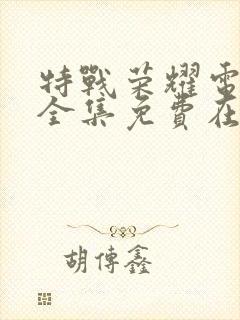 特戰荣耀電
全集免費在
胡傅鑫